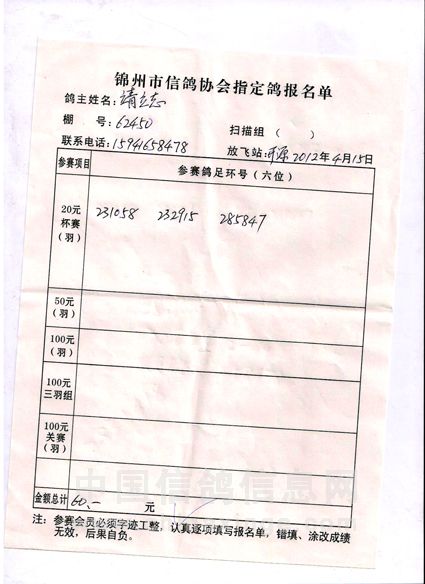 锦州市信鸽协会指定鸽报名单
鸽主姓名：靖立志
棚　号：62450
扫描组（　）
联系电话：15941658478
放飞站：开源 2012年4月15日
参赛项目
参赛鸽足环号（六位）
20元
杯赛
（羽）
231058　232915　285847
50元
（羽）
100元
（羽）
100元
三羽组
100元
关赛
（羽）
中国信鸽信息网
金额总计
60.—　元
注：参赛会员必须字迹工整，认真逐项填写报名单，错填、涂改成绩
无效，后果自负。